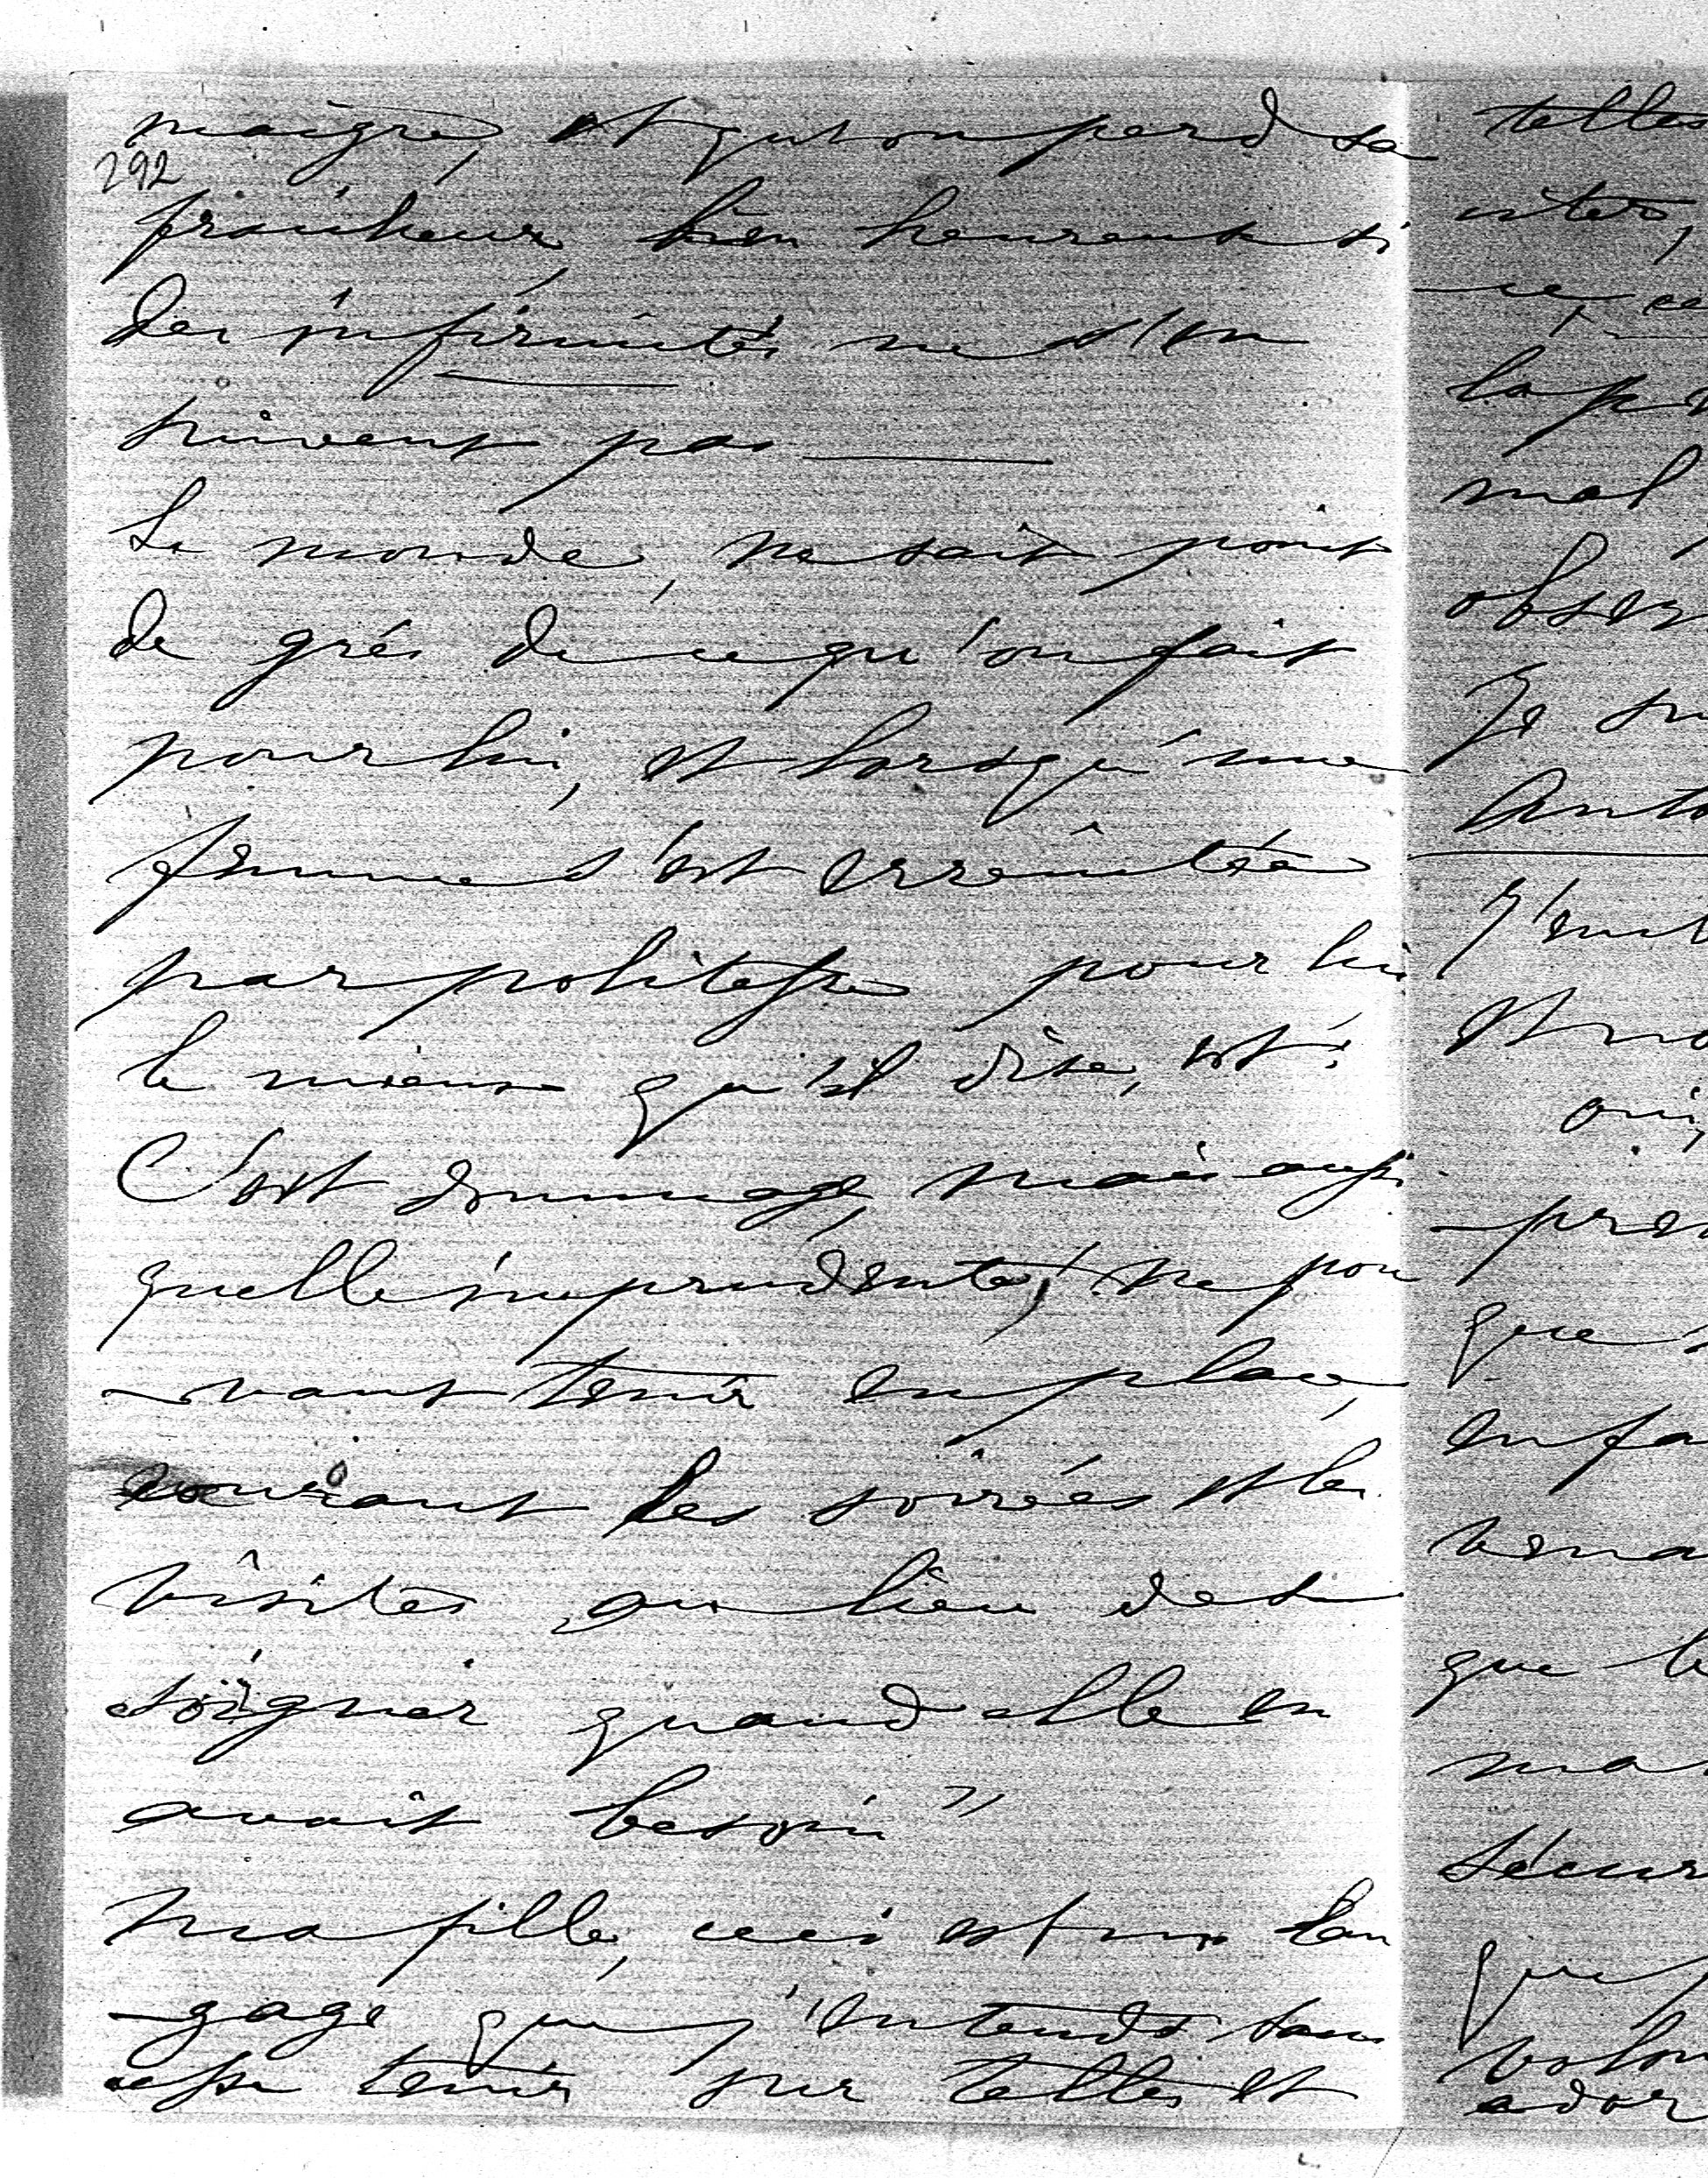 maigre, et qu'on perd sa
292
fraicheur, bien heureuse si
des infirmités ne s'en
suivent pas
Le monde, ne sait point
de grés de ce qu'on fait
pour lui, et lorsqu'une
femme s'est
par politesse pour lui
le mieux qu'il dise, est :
C'est dommage, mais aussi
quelle imprudente, ! ne pou
-vant tenir en place,
courant les soirées et les
visites, au lieu de se
soigner quand elle en
avait besoin"
Ma fille, ceci est un lan
-gage que j'entends sans
cesse tenir sur telles et
telles
mal
obser
Je su
Anto
et mo
oui,
pren
que
enfa
que le
ma
sécur
que
volon
ador